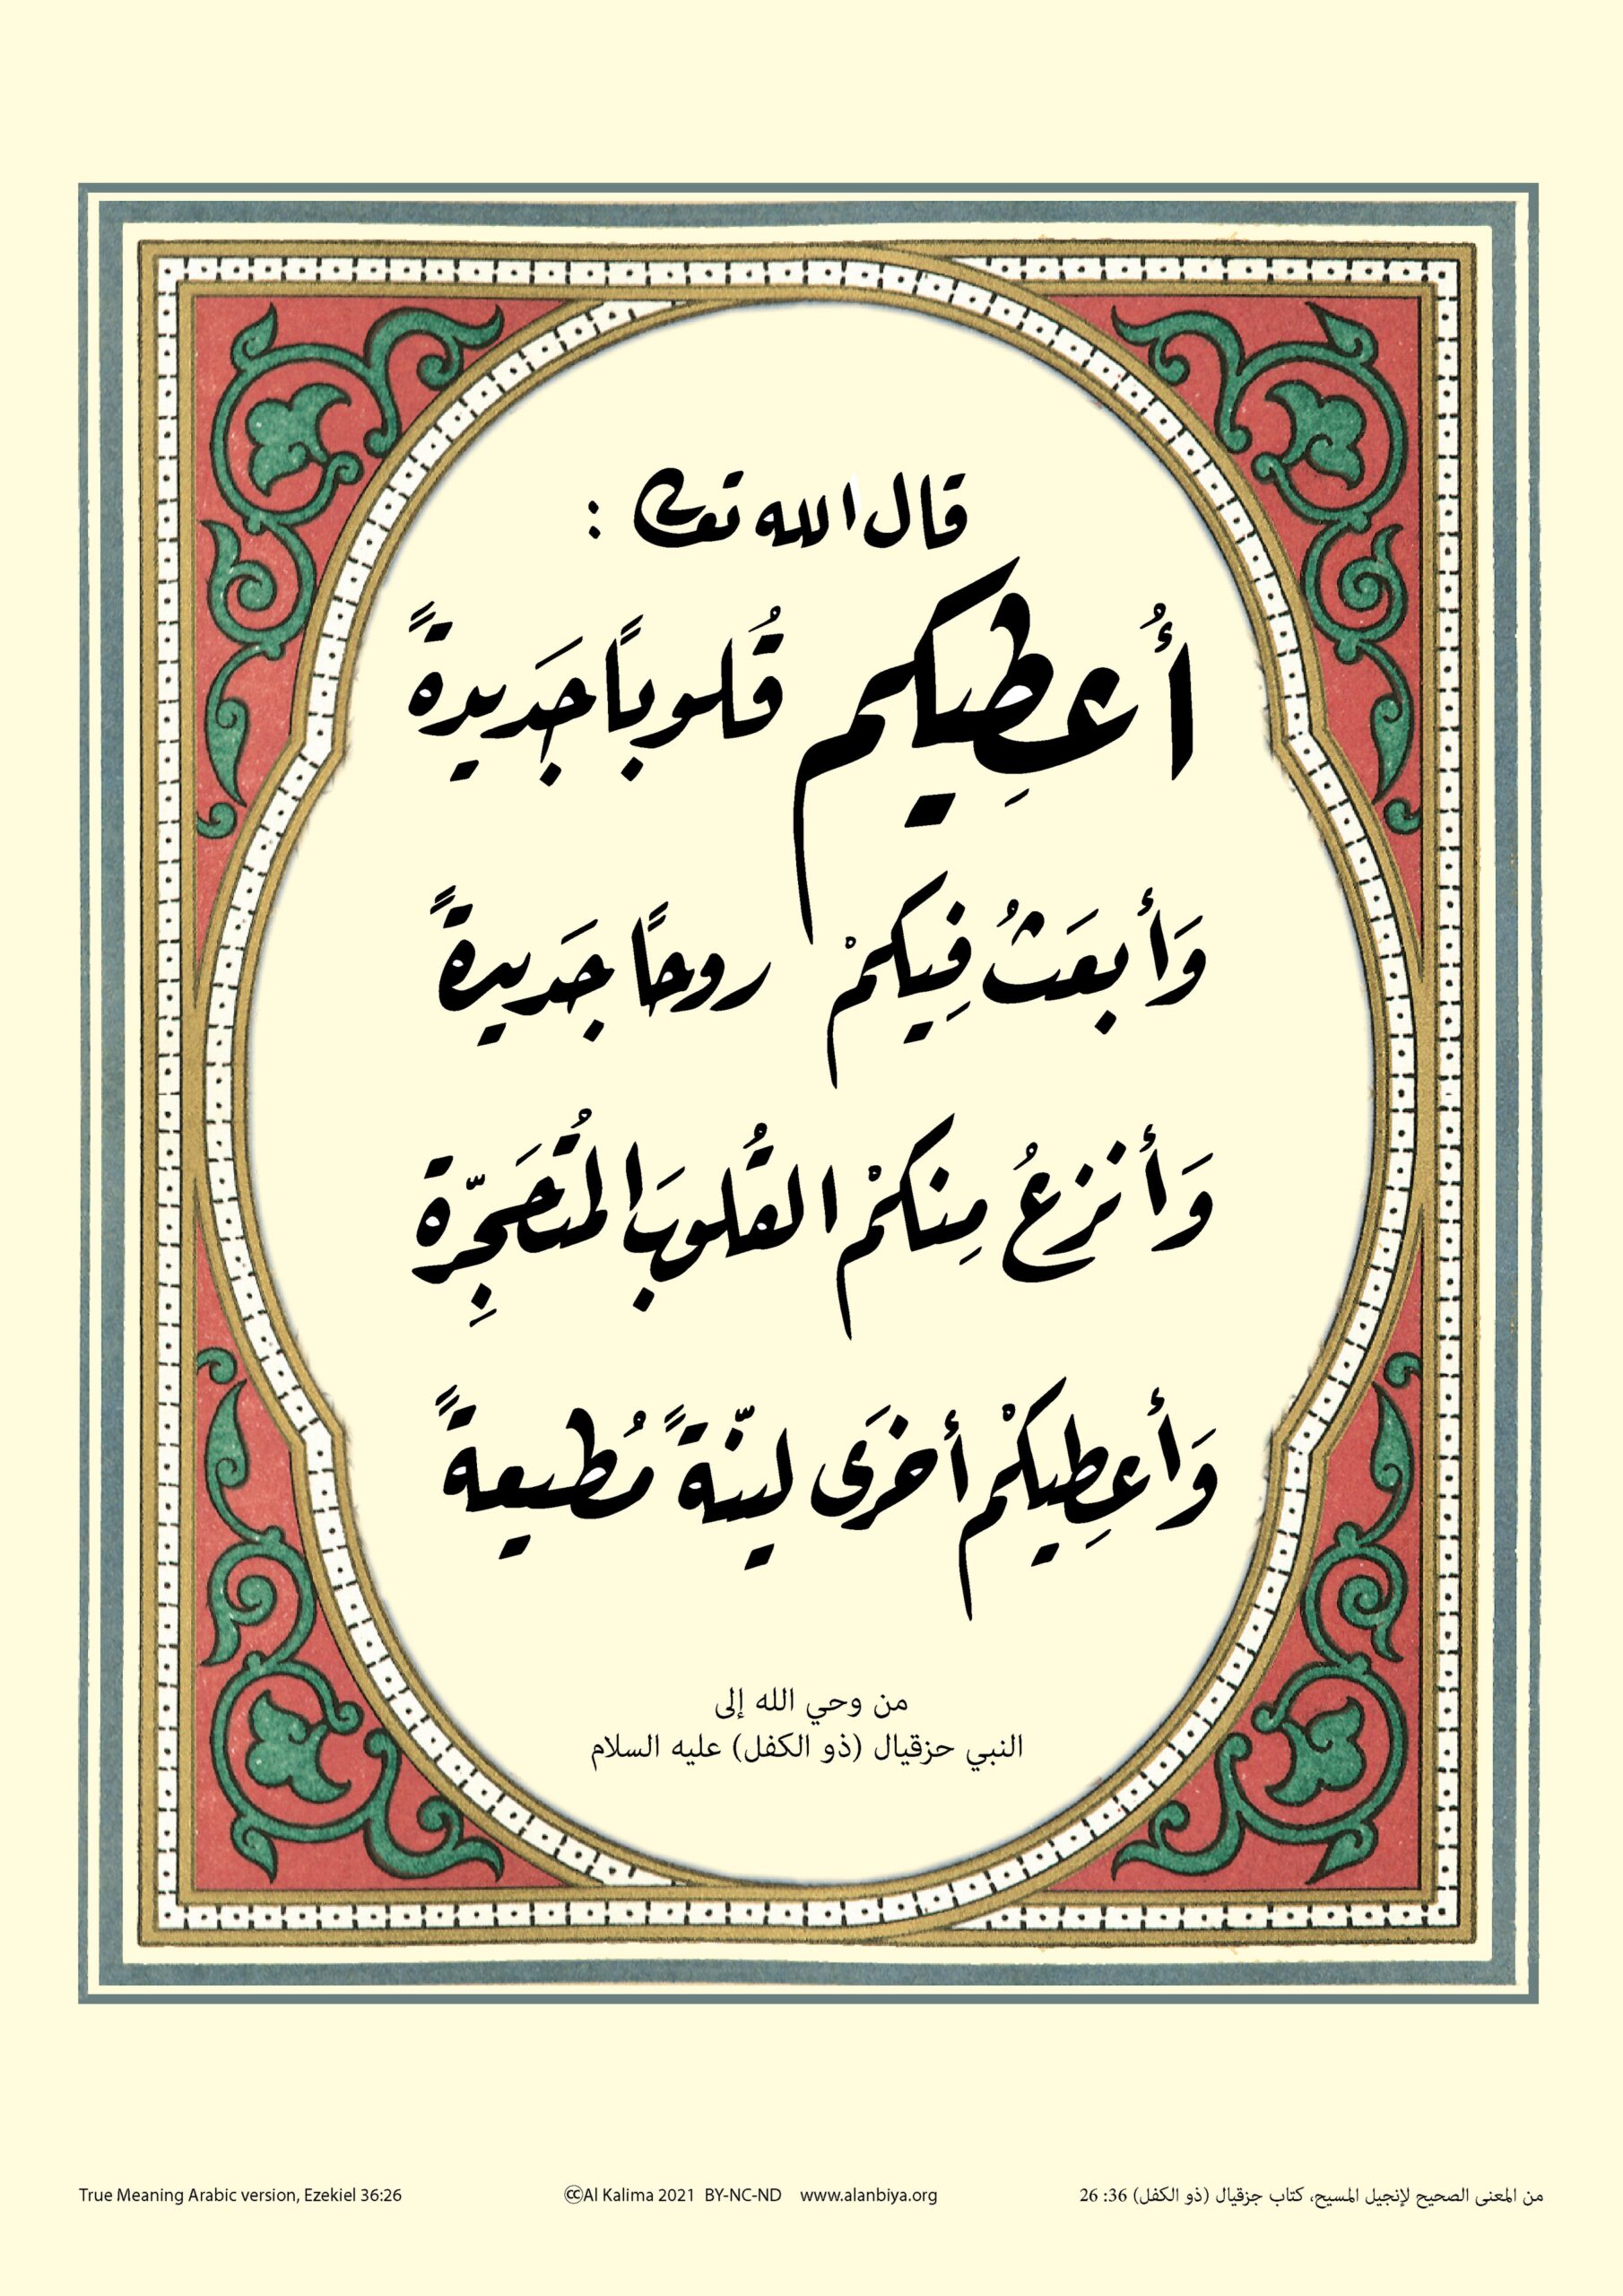 قال الله تعالى :
أُعطِيكم قُلوبًا جَديدةً
وَأبعَثُ فِيكمْ روحًا جَديدةً
وَأنزِعُ مِنكمْ القُلوبَ المُتَحَجِّرة
وَأعطِيكمْ أخرَى لينّةً مُطيعةً
من وحي الله إلى
النبي حزقيال (ذو الكفل) عليه السلام
True Meaning Arabic version, Ezekiel 36:26
🄯Al Kalima 2021 BY-NC-ND www.alanbiya.org
من المعنى الصحيح لإنجيل المسيح، كتاب حزقيال (ذو الكفل) 36: 26